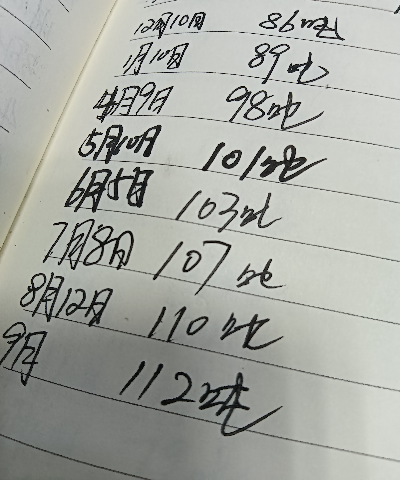 12月10日 86吨
1月10日 89吨
4月9日 98吨
5月10日 101吨
6月5日 103吨
7月8日 107吨
8月12日 110吨
9月 112吨